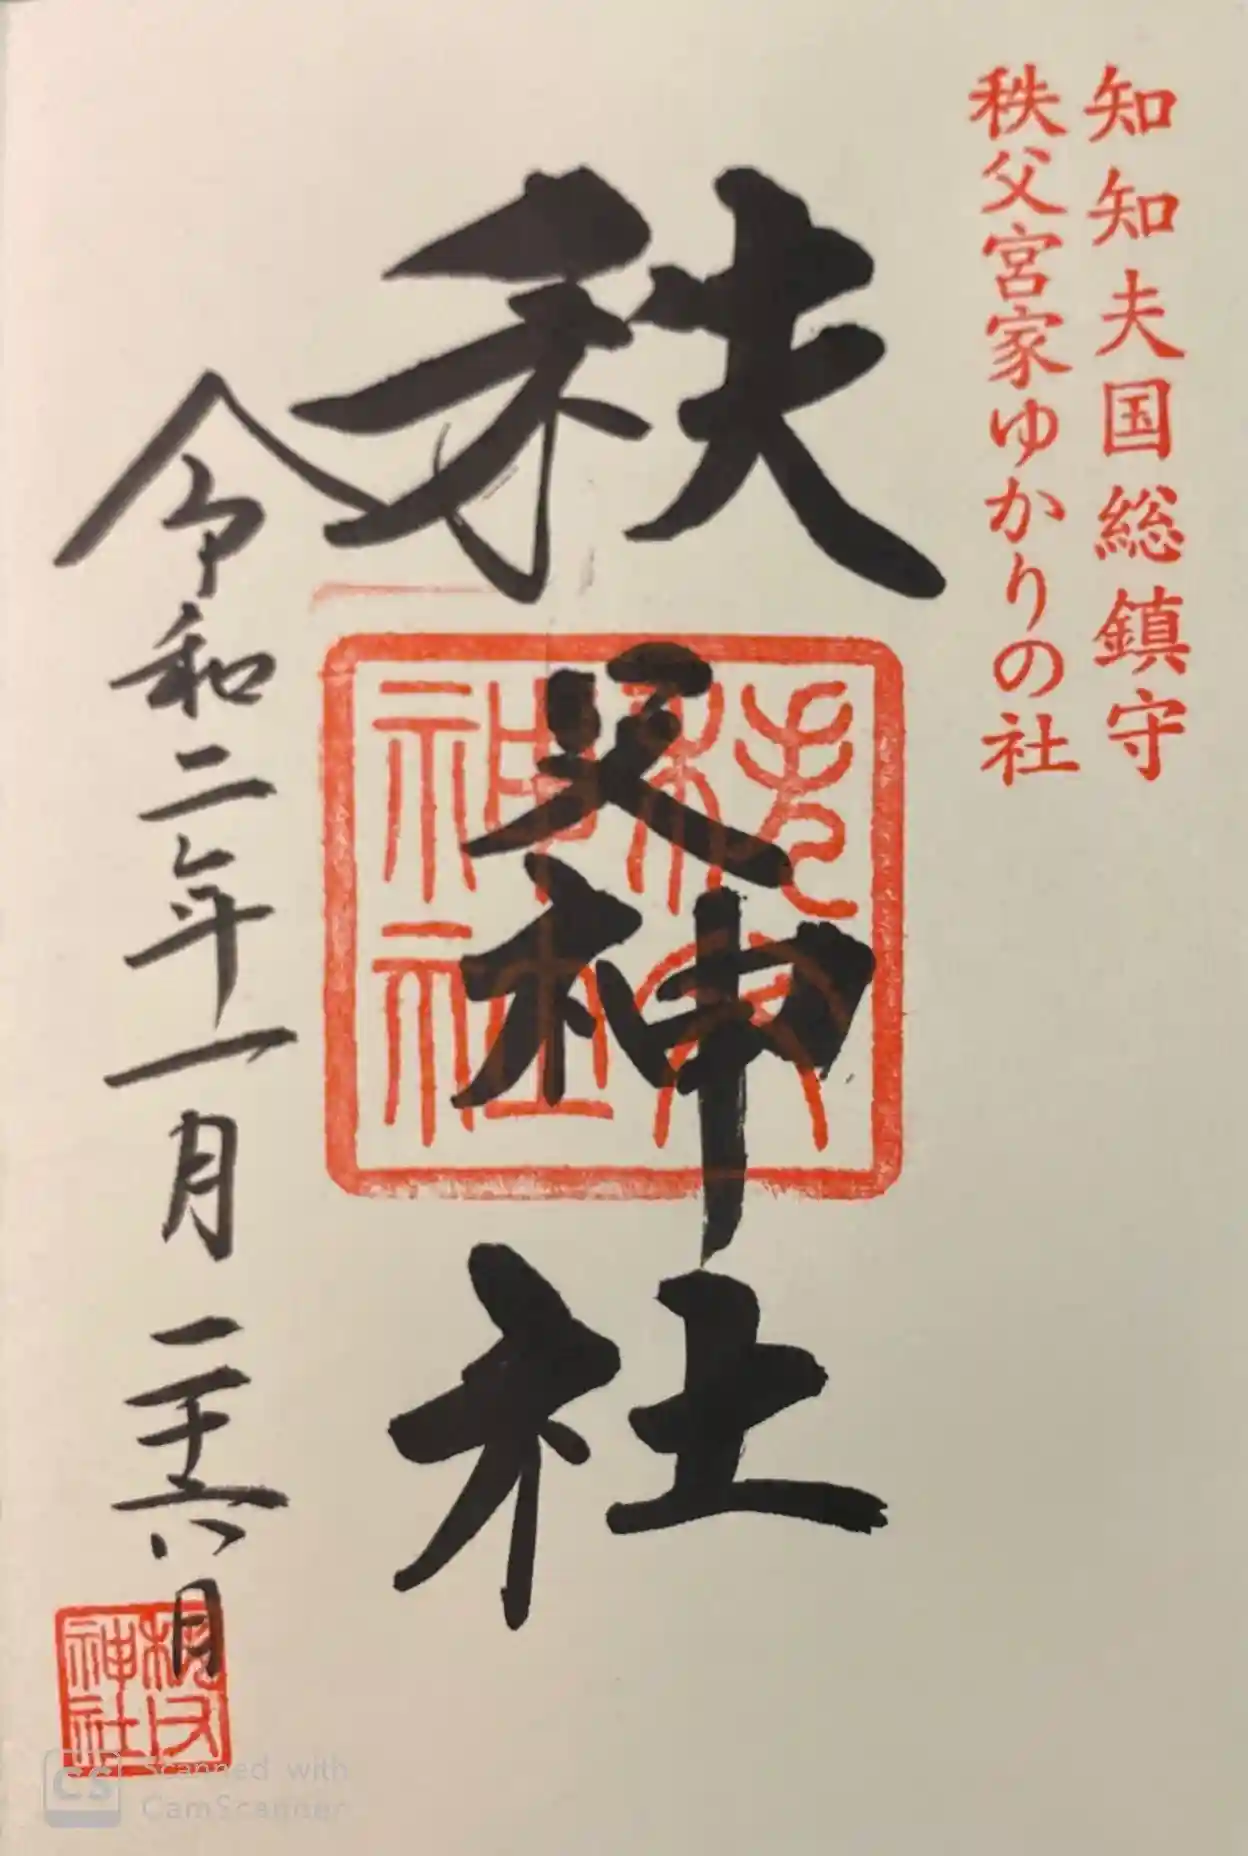 知知夫国総鎮守
秩父宮家ゆかりの社
秩父神社
秩父
神社
令和二年一月二十六日
秩父
神社
CS Scanned with
CamScanner